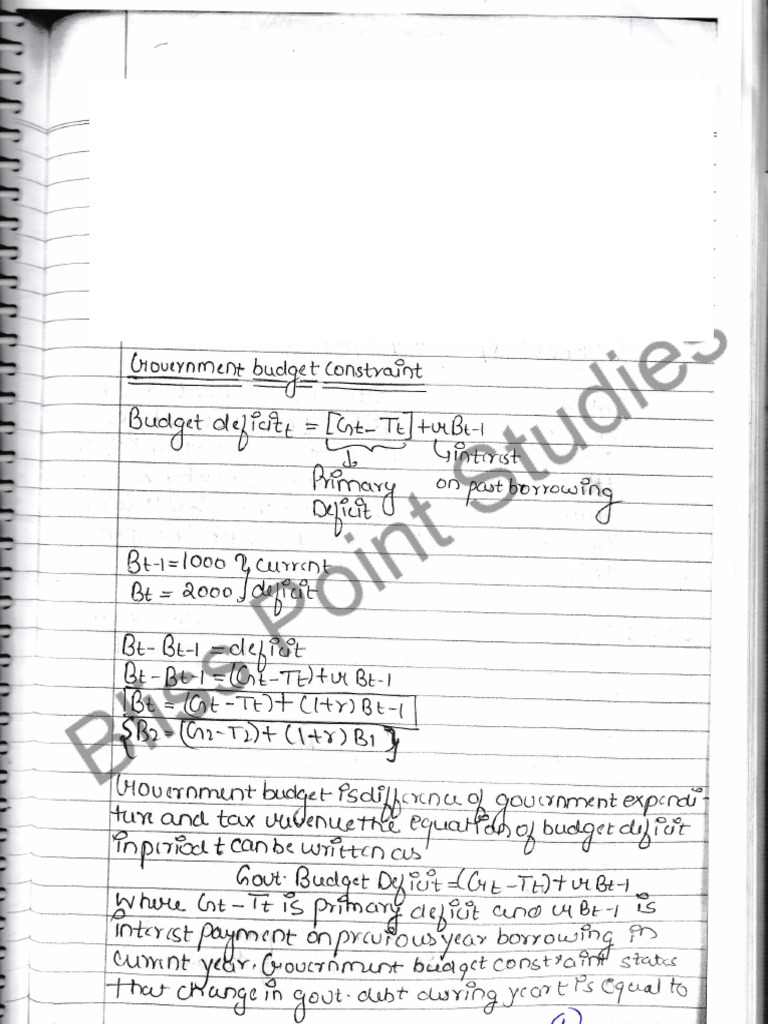 Government budget constraint
Budget deficit t = [Gt - Tt] + rBt-1
↓ ↳ interest
Primary on past borrowing
Deficit
Bt-1 = 1000 } current
Bt = 2000 } deficit
Bt - Bt-1 = deficit
Bt - Bt-1 = (Gt - Tt) + r Bt-1
Bt = (Gt - Tt) + (1+r) Bt-1
{B2 = (G2 - T2) + (1+r) B1}
Government budget is difference of government expendi-
ture and tax revenue the equation of budget deficit
in period t can be written as
Govt. Budget Deficit = (Gt - Tt) + r Bt-1
where Gt - Tt is primary deficit and r Bt-1 is
interest payment on previous year borrowing in
current year. Government budget constraint states
that change in govt. debt during year t is equal to
Bliss Point Studies